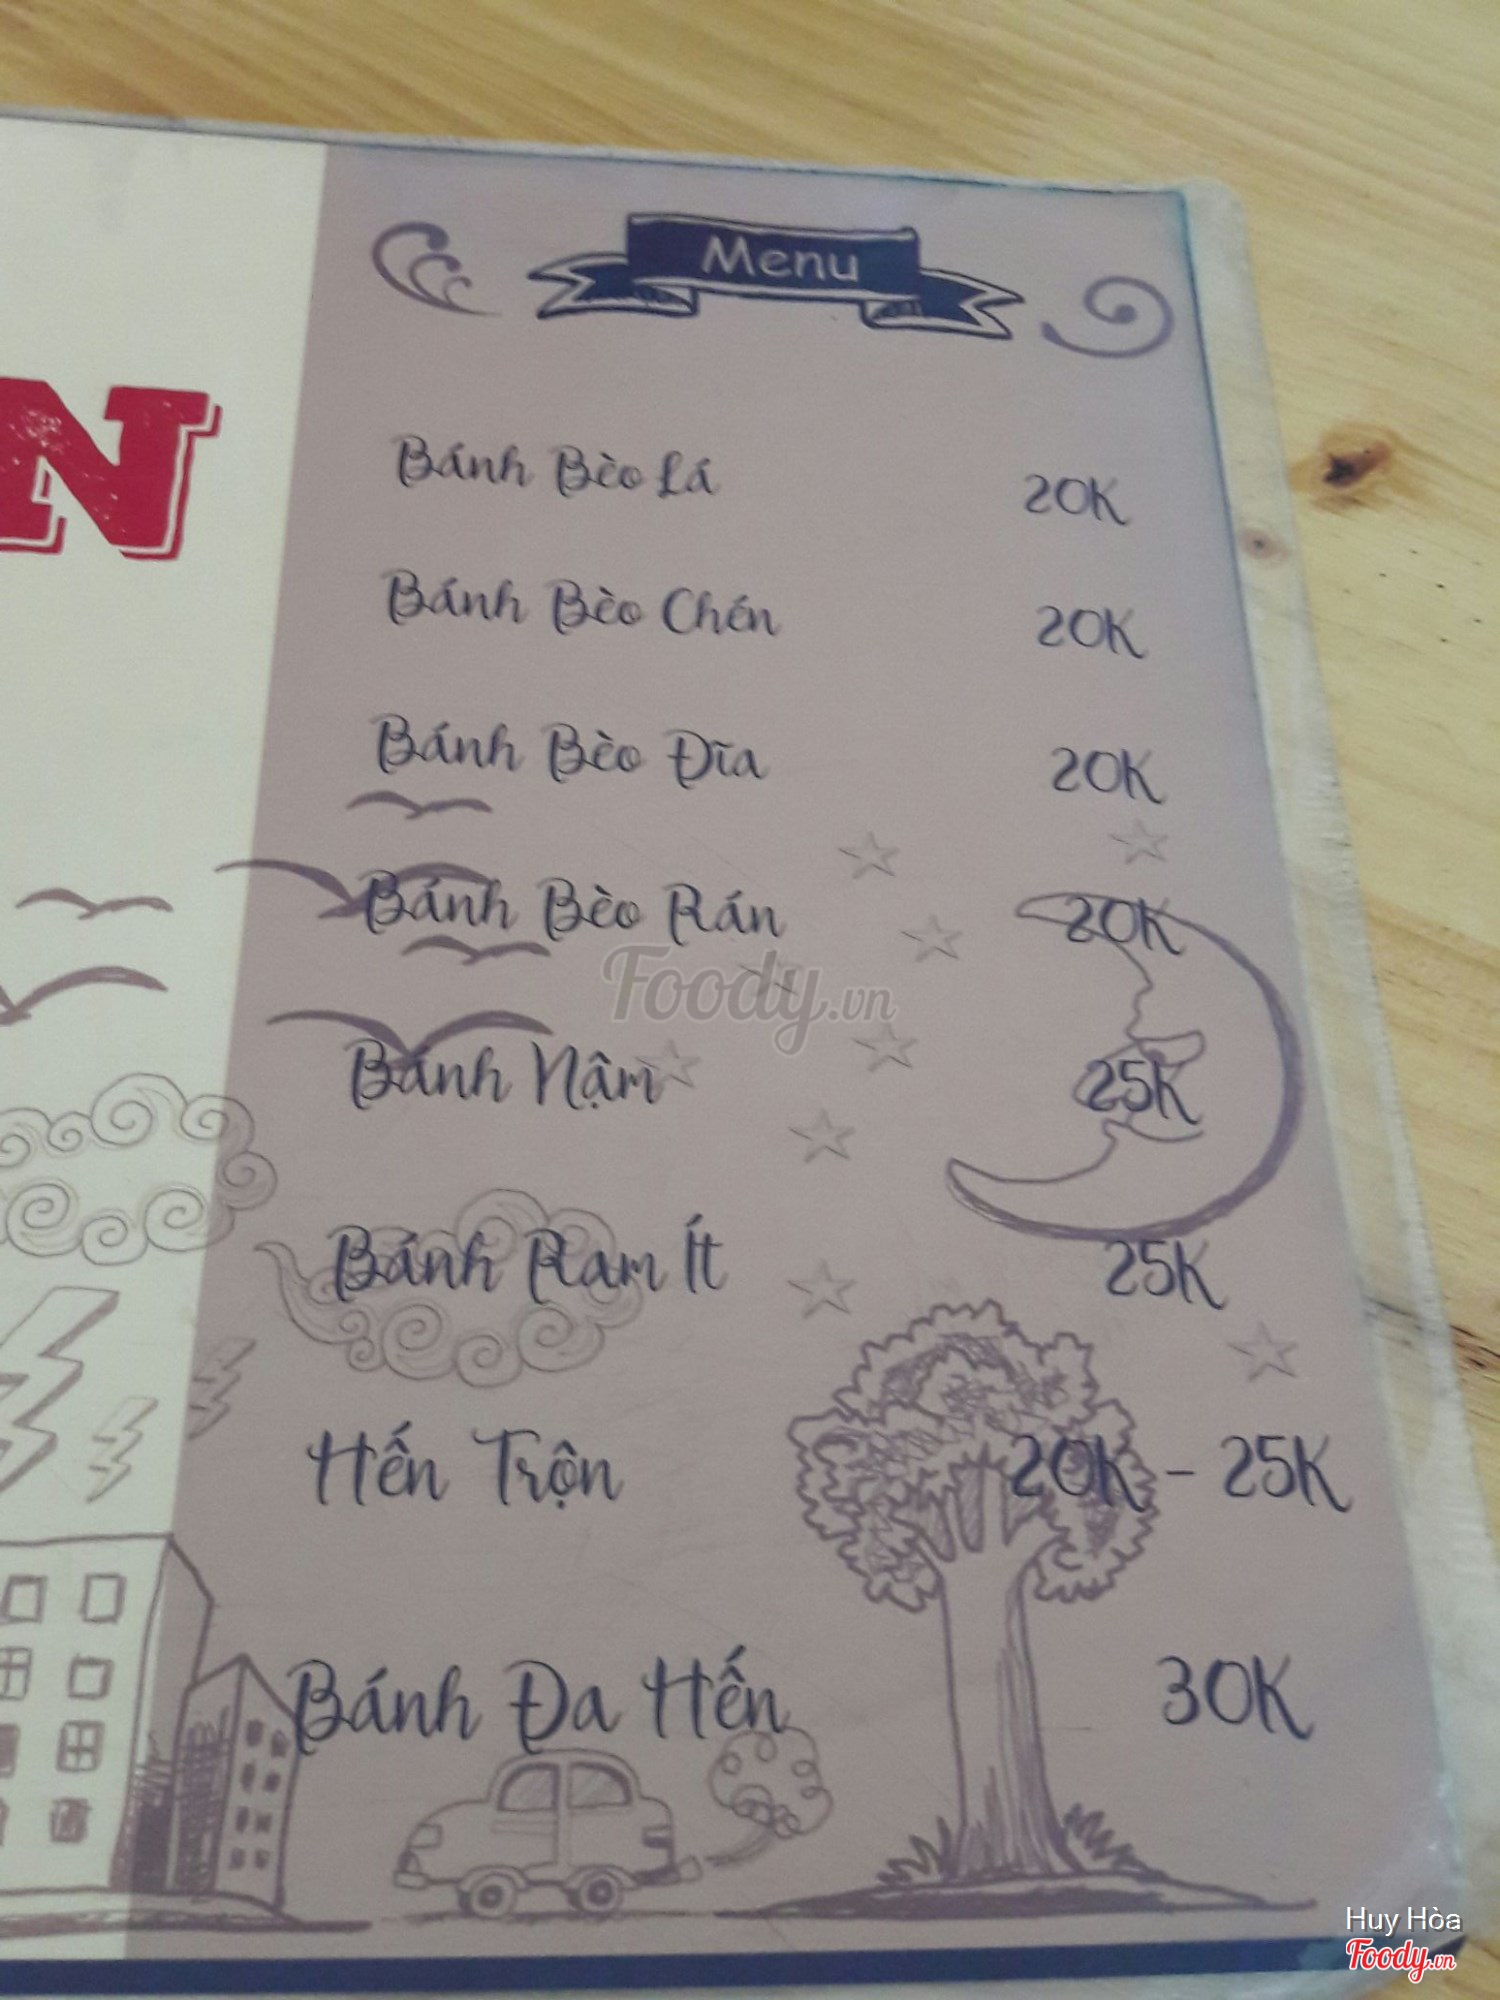 Menu
N
Bánh Bèo Lá 20K
Bánh Bèo Chén 20K
Bánh Bèo Đĩa 20K
Bánh Bèo Rán 20K
Foody.vn
Bánh Nậm 25K
Bánh Ram Ít 25K
Hến Trộn 20K - 25K
Bánh Đa Hến 30K
Huy Hòa
Foody.vn